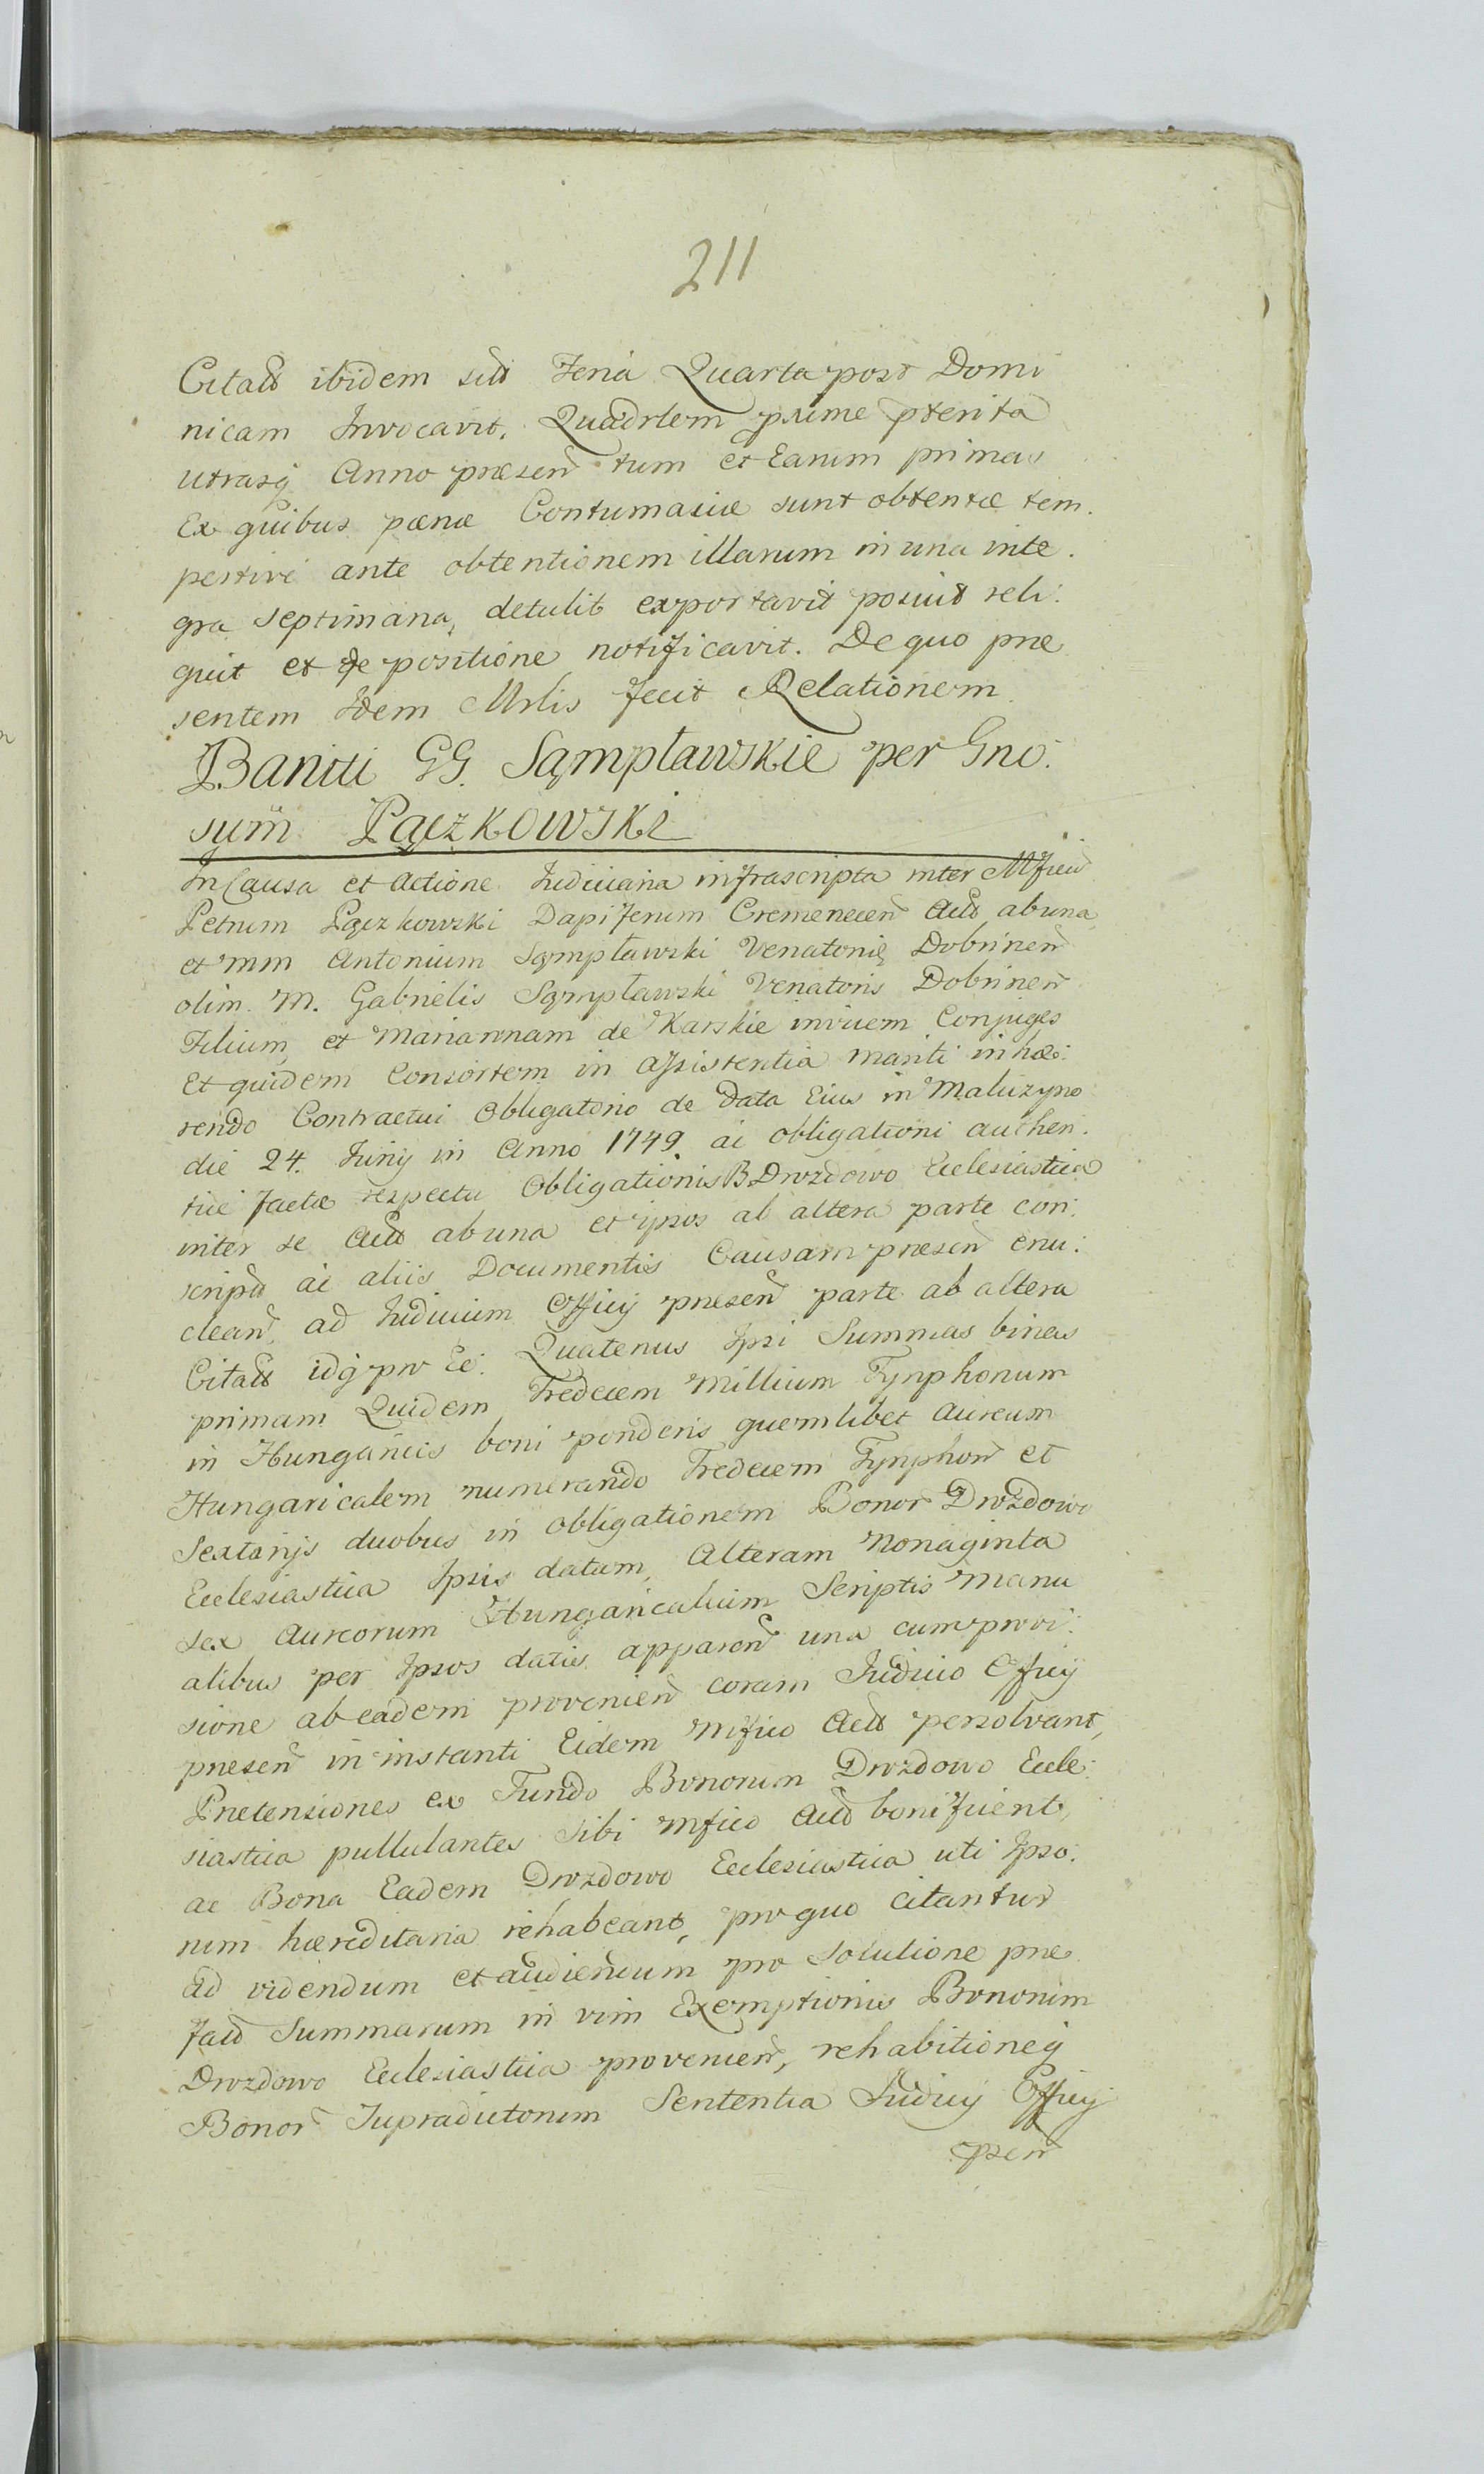 211
Citatt ibidem sitt Feria Quarta post Domi
nicam Invocavit, Quadrlem pxime pterita
utrasq Anno praesen tum et Earum primas
Ex quibus paenae Contumaciae sunt obtentae tem.
pestive ante obtentionem illarum in una inte.
gra septimana, detulit exportavit posuit reli:
quit et de positione notificavit. De quo prae
sentem Idem Mrlis fecit Relationem.
Baniti GG. Sąmpławskie per Gno:
sum Pączkowski
In Causa et Actione Judiciaria infrascripta inter Mficu
Petrum Pączkowski Dapiferum Cremenecen Actt ab una
et mm Antonium Sąmpławski Venatorię Dobrinen
olim M. Gabrielis Sąmpławski Venatoris Dobrinen
Filium, et Mariannam de Karskie invicem Conjuges
Et quidem Consortem in Assistentia mariti inhae:
rendo Contractui Obligatorio de Data Eius in Maluzyno
die 24. Junij in Anno 1749. ac obligationi authen.
ticé factae respectu Obligationis B Drozdowo Ecclesiastica
inter se Actt ab una et ipsos ab altera parte con:
script ac aliis Documentis Causam praesen enu:
clean, ad Judicium Officij praesen parte ab altera
Citatt idq pro Eo: Quatenus Ipsi Summas binas
primam Quidem Tredecem Millium Tynphonum
in Hungaricis boni ponderis quemlibet Aureum
Hungaricalem numerando Tredecem Tynphon et
Sextarijs duobus in obligationem Bonor Drozdowo
Ecclesiastica Ipsis datam, Alteram Nonaginta
sex Aureorum Hungaricalium Scriptis Manu
alibus per Ipsos datis apparen una cum provi:
sione ab eadem provenien coram Judicio Officij
praesen in instanti Eidem Mfico Actt persolvant,
Praetensiones ex Fundo Bonorum Drozdowo Eccle:
siastica pullulantes sibi Mfico Actt bonificent,
ac Bona Eadem Drozdowo Ecclesiastica uti Ipso:
rum haereditaria rehabeant, pro quo citantur
ad videndum et audiendum pro solutione prae
fatt Summarum in vim Exemptionis Bonorum
Drozdowo Ecclesiastica provenien, rehabitioneq
Bonor Supradictorum Sententia Judicij Officij
psen